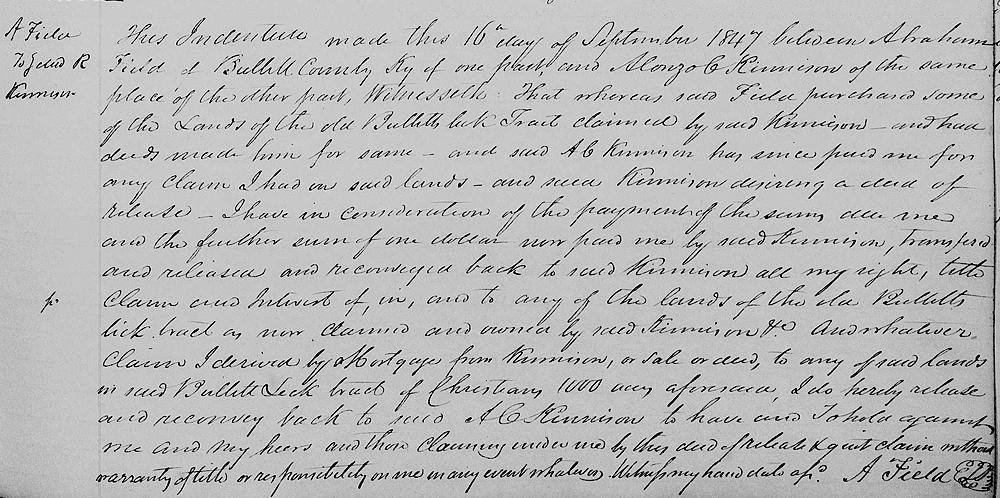 A Field
To Deed R
Kinnison
This Indenture made this 16th day of September 1847 between Abraham
Field of Bullitt County Ky of one part, and Alonzo C Kinnison of the same
place of the other part, Witnesseth: That whereas said Field purchased some
of the Lands of the old Bullitts lick Tract claimed by said Kinnison – and had
deeds made him for same – and said A C Kinnison has since paid me for
any claim I had on said lands – and said Kinnison desiring a deed of
release – I have in consideration of the payment of the sums due me
and the further sum of one dollar now paid me by said Kinnison, transfered
and released and reconveyed back to said Kinnison all my right, title
Claim and Interest of, in, and to any of the lands of the old Bullitts
lick tract as now claimed and owned by said Kinnison &c And whatever
Claim I derived by Mortgage from Kinnison, or sale or deed, to any of said lands
in said Bullitt Lick tract of Christians 1000 acres aforesaid, I do hereby release
and reconvey back to said A C Kinnison to have and To hold against
me and my heirs and those Claiming under me by this deed of release & quit claim without
warranty of title or responsibility on me in any event whatever. Witness my hand date afsd. A Field